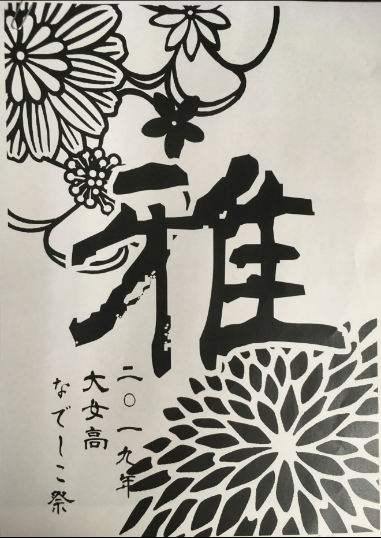 雅
二〇一九年
大女高
なでしこ祭